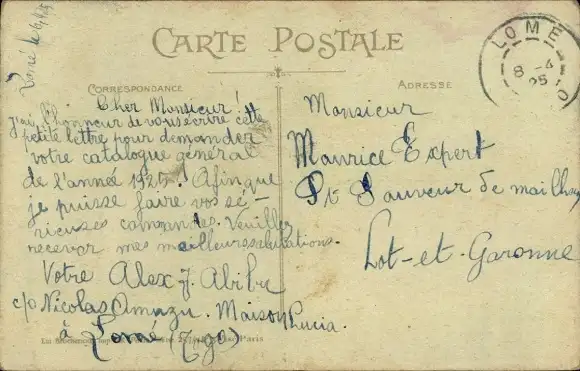 CARTE POSTALE
CORRESPONDANCE
Cher Monsieur!
j'ai l'honneur de vous écrire cette
petite lettre pour demander
votre catalogue général
de l'année 1925. Afin que
je puisse faire vos sé-
rieuses commandes. Veuillez
recevoir mes meilleures salutations.
Votre Alex J. Abibu
c/o Nicolas Amuzu. Maison Lucia.
à Lomé (Togo)
Paris
ADRESSE
Monsieur
Maurice Expert
St Sauveur de meilhan
Lot-et-Garonne
LOME
8-4
25
TOGO